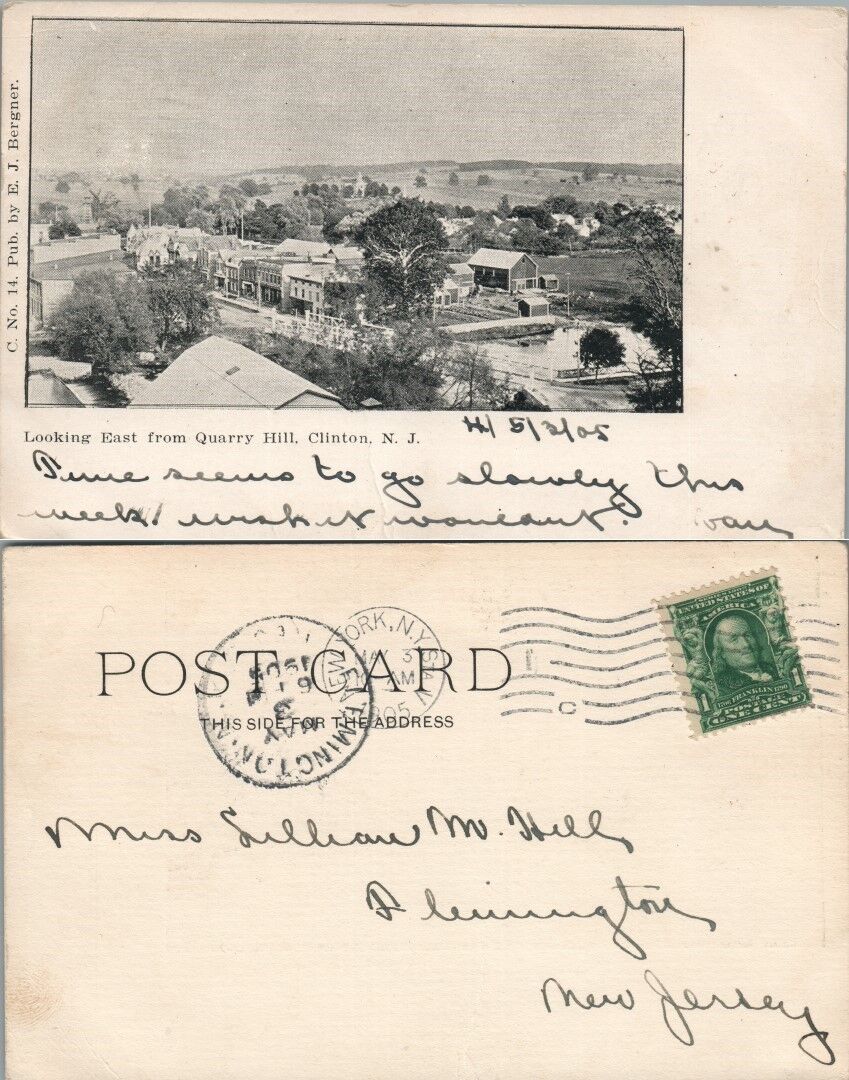 C. No. 14. Pub. by E. J. Bergner.
Looking East from Quarry Hill, Clinton, N. J.
5/3/05
Time seems to go slowly this
week! wish it wouldn't.
POST CARD
THIS SIDE FOR THE ADDRESS
NEW YORK, N.Y.
3
AM
1905
FLEMINGTON, N.J.
MAY
3
6 PM
1905
REC'D
UNITED STATES OF
AMERICA
1 FRANKLIN 1
POSTAGE
ONE CENT
Miss Lillian M. Hill
Flemington
New Jersey